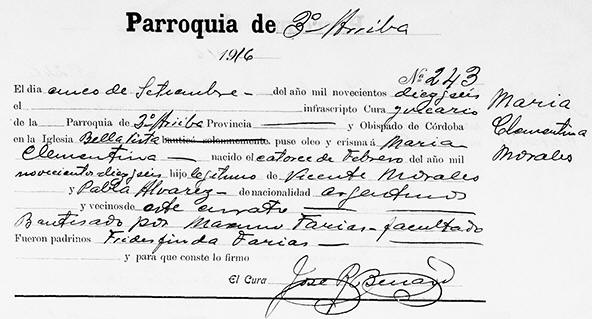 Parroquia de 3º Arriba
1916
Nº 243
El día cinco de Setiembre - del año mil novecientos dieziseis
el infrascripto Cura Vicario
de la Parroquia de 3º Arriba Provincia y Obispado de Córdoba
en la Iglesia Bella Vista bautizó solemnemente puso oleo y crismó á Maria
Clementina - nacido el catorce de Febrero del año mil
novecientos dieziseis hijo legítimo de Vicente Morales
y Pabla Alvarez - de nacionalidad argentinos
y vecinos de este curato
Bautisado por Maximo Farias - facultado
Fueron padrinos Fridesfinda Farias -
y para que conste lo firmo
El Cura José R.
Maria
Clementina
Morales